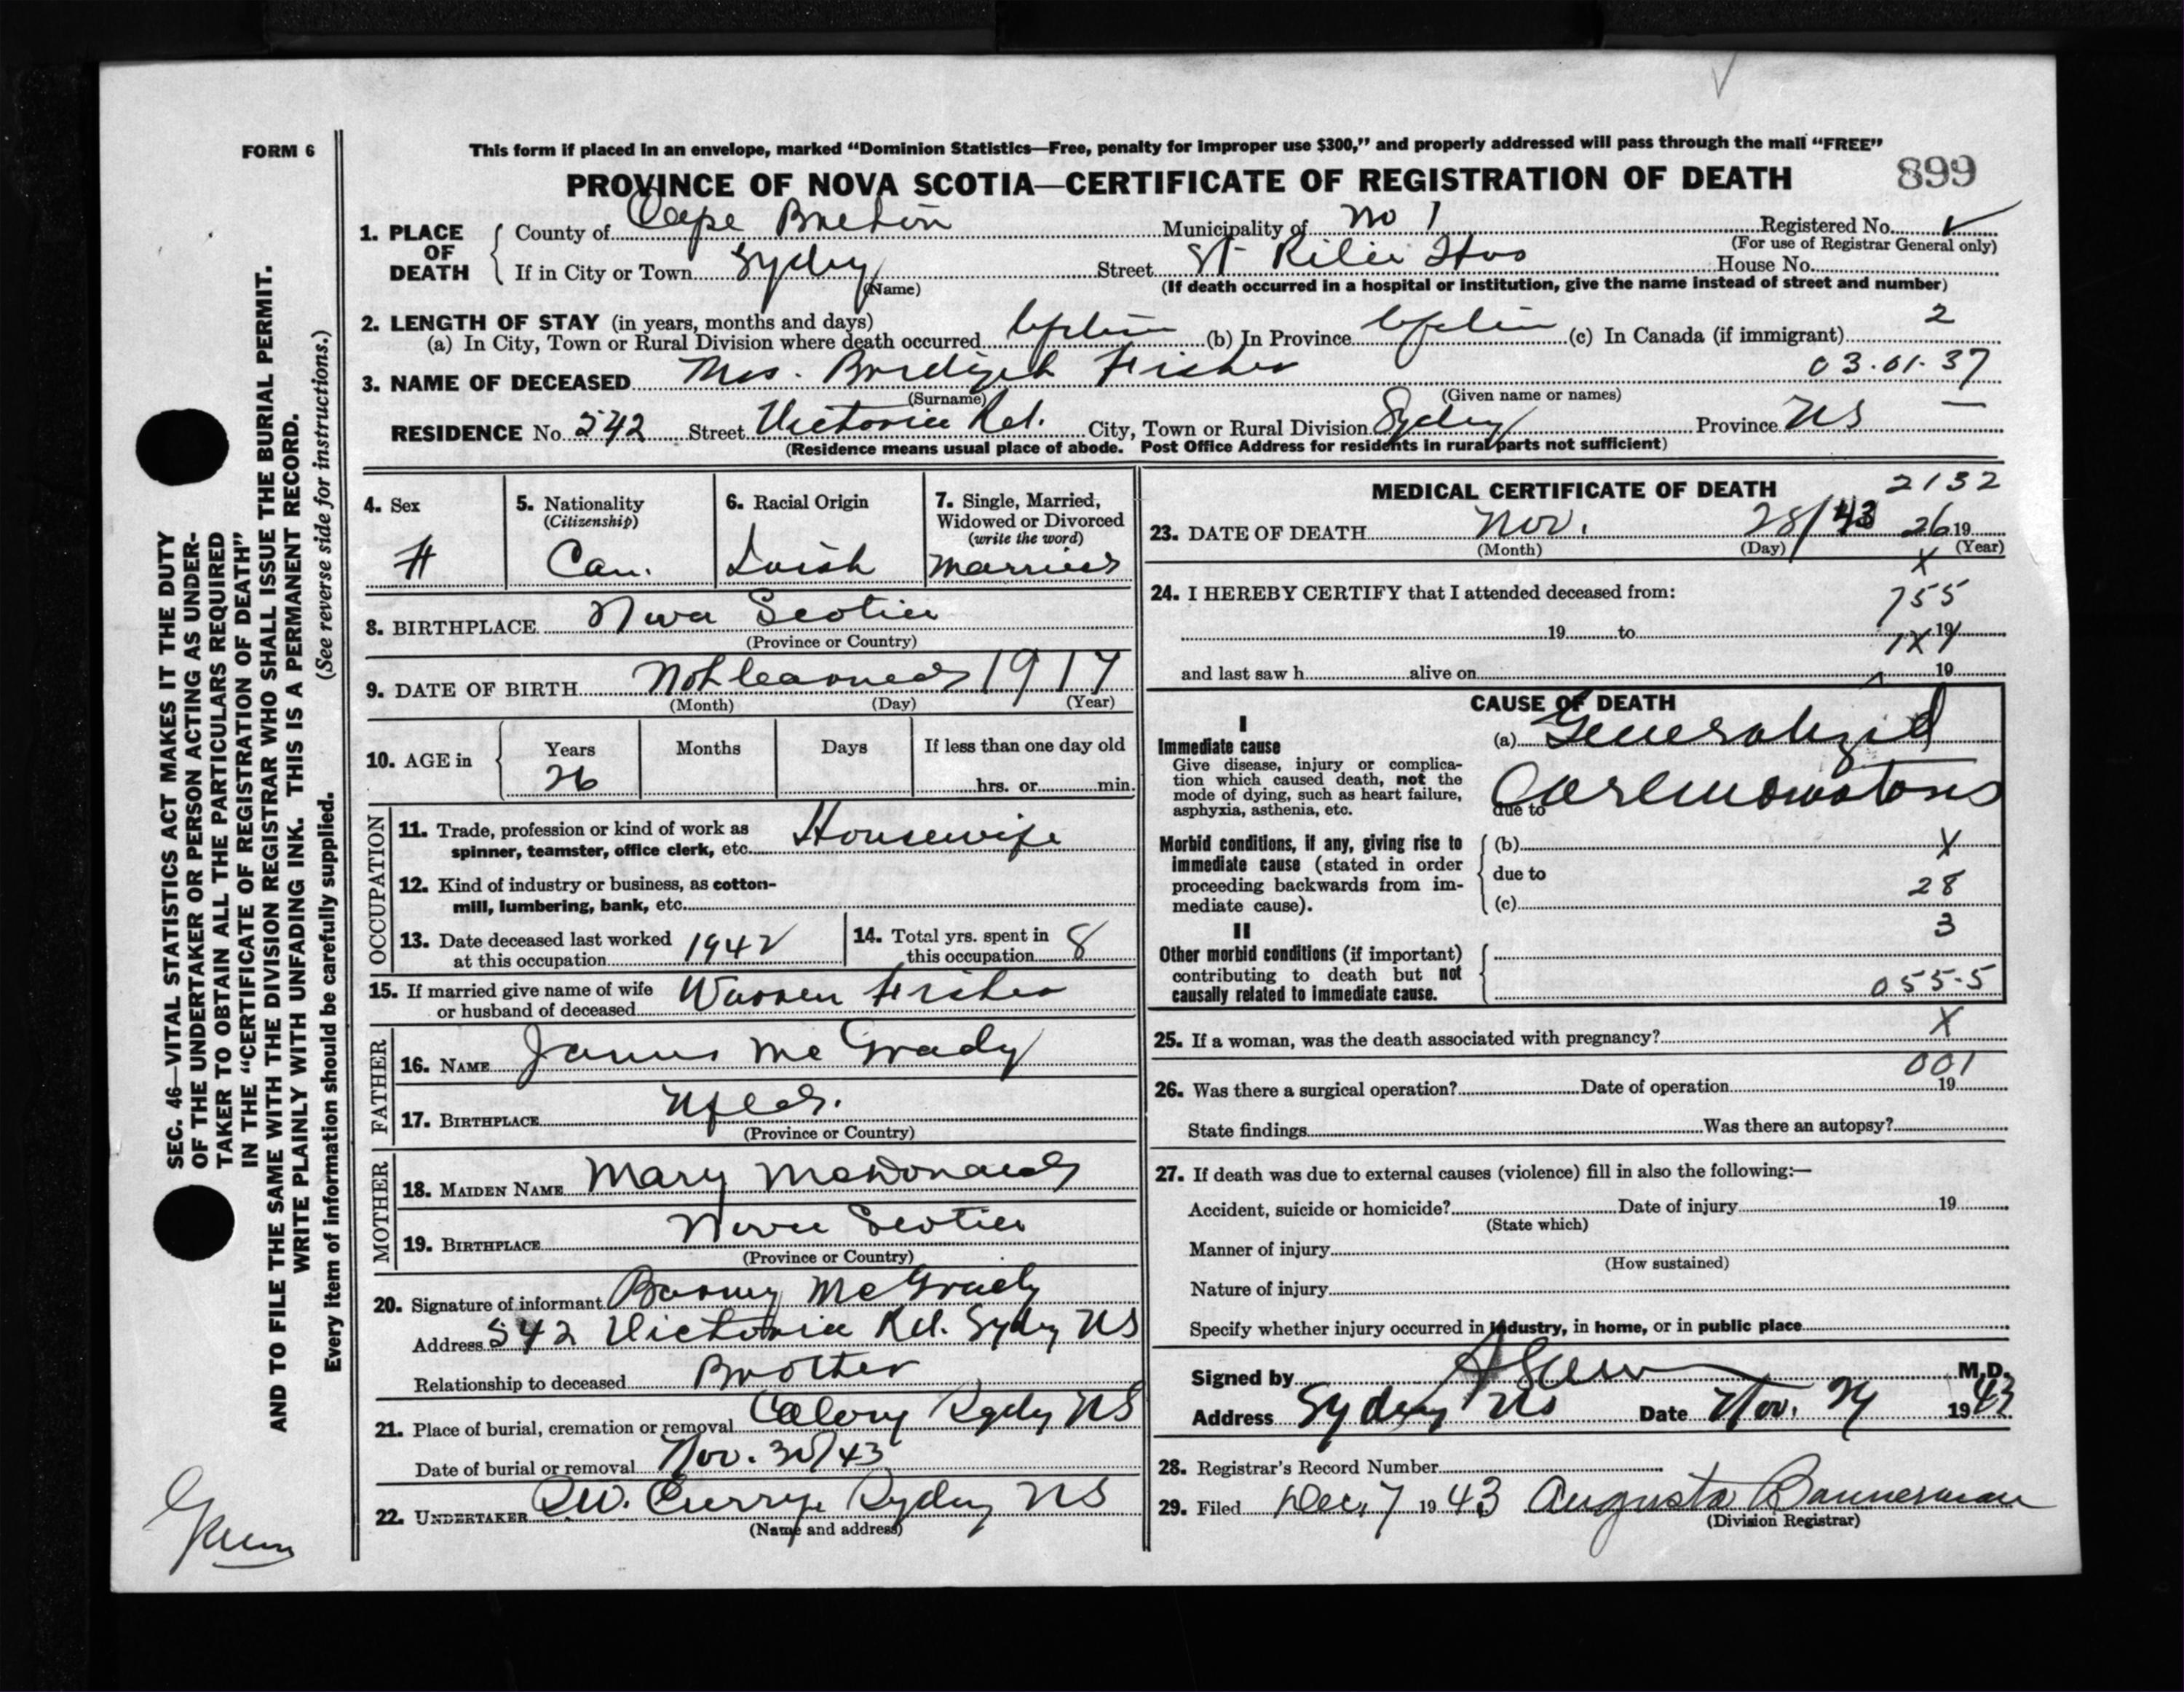 FORM 6
This form if placed in an envelope, marked “Dominion Statistics—Free, penalty for improper use $300,” and properly addressed will pass through the mail “FREE”
PROVINCE OF NOVA SCOTIA—CERTIFICATE OF REGISTRATION OF DEATH 899
1. PLACE OF DEATH
County of Cape Breton Municipality of No 1 Registered No.
(For use of Registrar General only)
If in City or Town Sydney Street St Hos House No.
(Name) (If death occurred in a hospital or institution, give the name instead of street and number)
2. LENGTH OF STAY (in years, months and days)
(a) In City, Town or Rural Division where death occurred (b) In Province (c) In Canada (if immigrant) 2
3. NAME OF DECEASED Mrs. Fisher 03.01.37
(Surname) (Given name or names)
RESIDENCE No. 542 Street Victoria Rd. City, Town or Rural Division Sydney Province NS
(Residence means usual place of abode. Post Office Address for residents in rural parts not sufficient)
4. Sex
5. Nationality (Citizenship) Can.
6. Racial Origin Irish
7. Single, Married, Widowed or Divorced (write the word) Married
8. BIRTHPLACE Nova Scotia
(Province or Country)
9. DATE OF BIRTH Not learned 1917
(Month) (Day) (Year)
10. AGE in Years 26 Months Days If less than one day old
hrs. or min.
OCCUPATION
11. Trade, profession or kind of work as spinner, teamster, office clerk, etc. Housewife
12. Kind of industry or business, as cotton-mill, lumbering, bank, etc.
13. Date deceased last worked at this occupation 1942
14. Total yrs. spent in this occupation 8
15. If married give name of wife or husband of deceased Warren Fisher
FATHER
16. NAME James McGrady
17. BIRTHPLACE Nfld.
(Province or Country)
MOTHER
18. MAIDEN NAME Mary McDonald
19. BIRTHPLACE Nova Scotia
(Province or Country)
20. Signature of informant McGrady
Address 542 Victoria Rd. Sydney NS
Relationship to deceased Brother
21. Place of burial, cremation or removal Sydney NS
Date of burial or removal Nov. 30/43
22. UNDERTAKER Sydney NS
(Name and address)
MEDICAL CERTIFICATE OF DEATH 2132
23. DATE OF DEATH Nov. 28/43 26 19
(Month) (Day) (Year)
X
24. I HEREBY CERTIFY that I attended deceased from:
755
19 to 19
1X1
and last saw h alive on 19
CAUSE OF DEATH
I
Immediate cause
Give disease, injury or complication which caused death, not the mode of dying, such as heart failure, asphyxia, asthenia, etc.
(a) Generalized
due to
Morbid conditions, if any, giving rise to immediate cause (stated in order proceeding backwards from immediate cause).
(b) X
due to
28
(c)
II
3
Other morbid conditions (if important) contributing to death but not causally related to immediate cause.
055-5
25. If a woman, was the death associated with pregnancy? X
001
26. Was there a surgical operation? Date of operation 19
State findings Was there an autopsy?
27. If death was due to external causes (violence) fill in also the following:—
Accident, suicide or homicide? Date of injury 19
(State which)
Manner of injury
(How sustained)
Nature of injury
Specify whether injury occurred in industry, in home, or in public place
Signed by M.D.
Address Sydney NS Date Nov. 1943
28. Registrar's Record Number
29. Filed Dec. 7 1943 Augusta Bannerman
(Division Registrar)
SEC. 46—VITAL STATISTICS ACT MAKES IT THE DUTY
OF THE UNDERTAKER OR PERSON ACTING AS UNDER-
TAKER TO OBTAIN ALL THE PARTICULARS REQUIRED
IN THE “CERTIFICATE OF REGISTRATION OF DEATH”
AND TO FILE THE SAME WITH THE DIVISION REGISTRAR WHO SHALL ISSUE THE BURIAL PERMIT.
WRITE PLAINLY WITH UNFADING INK. THIS IS A PERMANENT RECORD.
Every item of information should be carefully supplied. (See reverse side for instructions.)